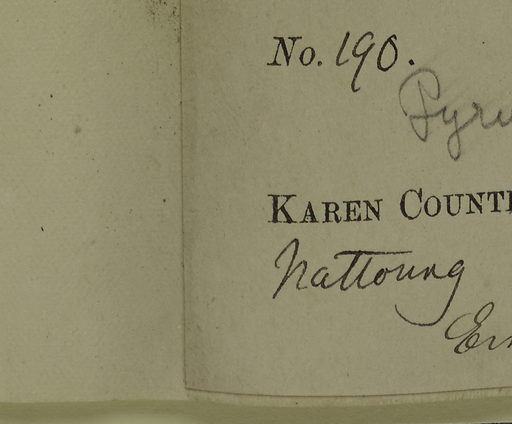 No. 190.
Pyru
KAREN COUNT
Nattoung